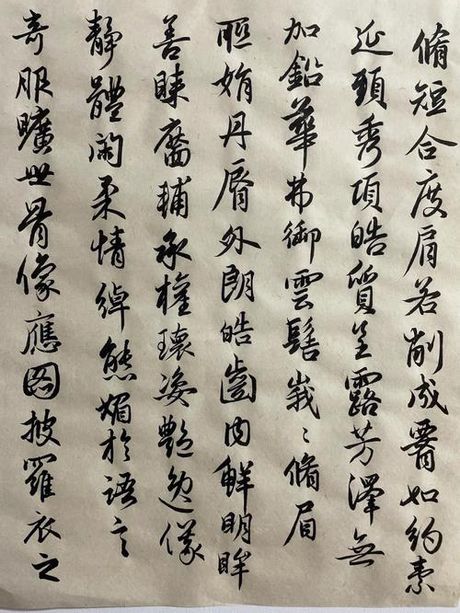 脩短合度肩若削成腰如約素
延頸秀項皓質呈露芳澤無
加鉛華弗御雲髻峩〻脩眉
聯娟丹脣外朗皓齒內鮮明眸
善睞靨輔承權瓌姿艷逸儀
靜體閑柔情綽態媚於語言
奇服曠世骨像應圖披羅衣之